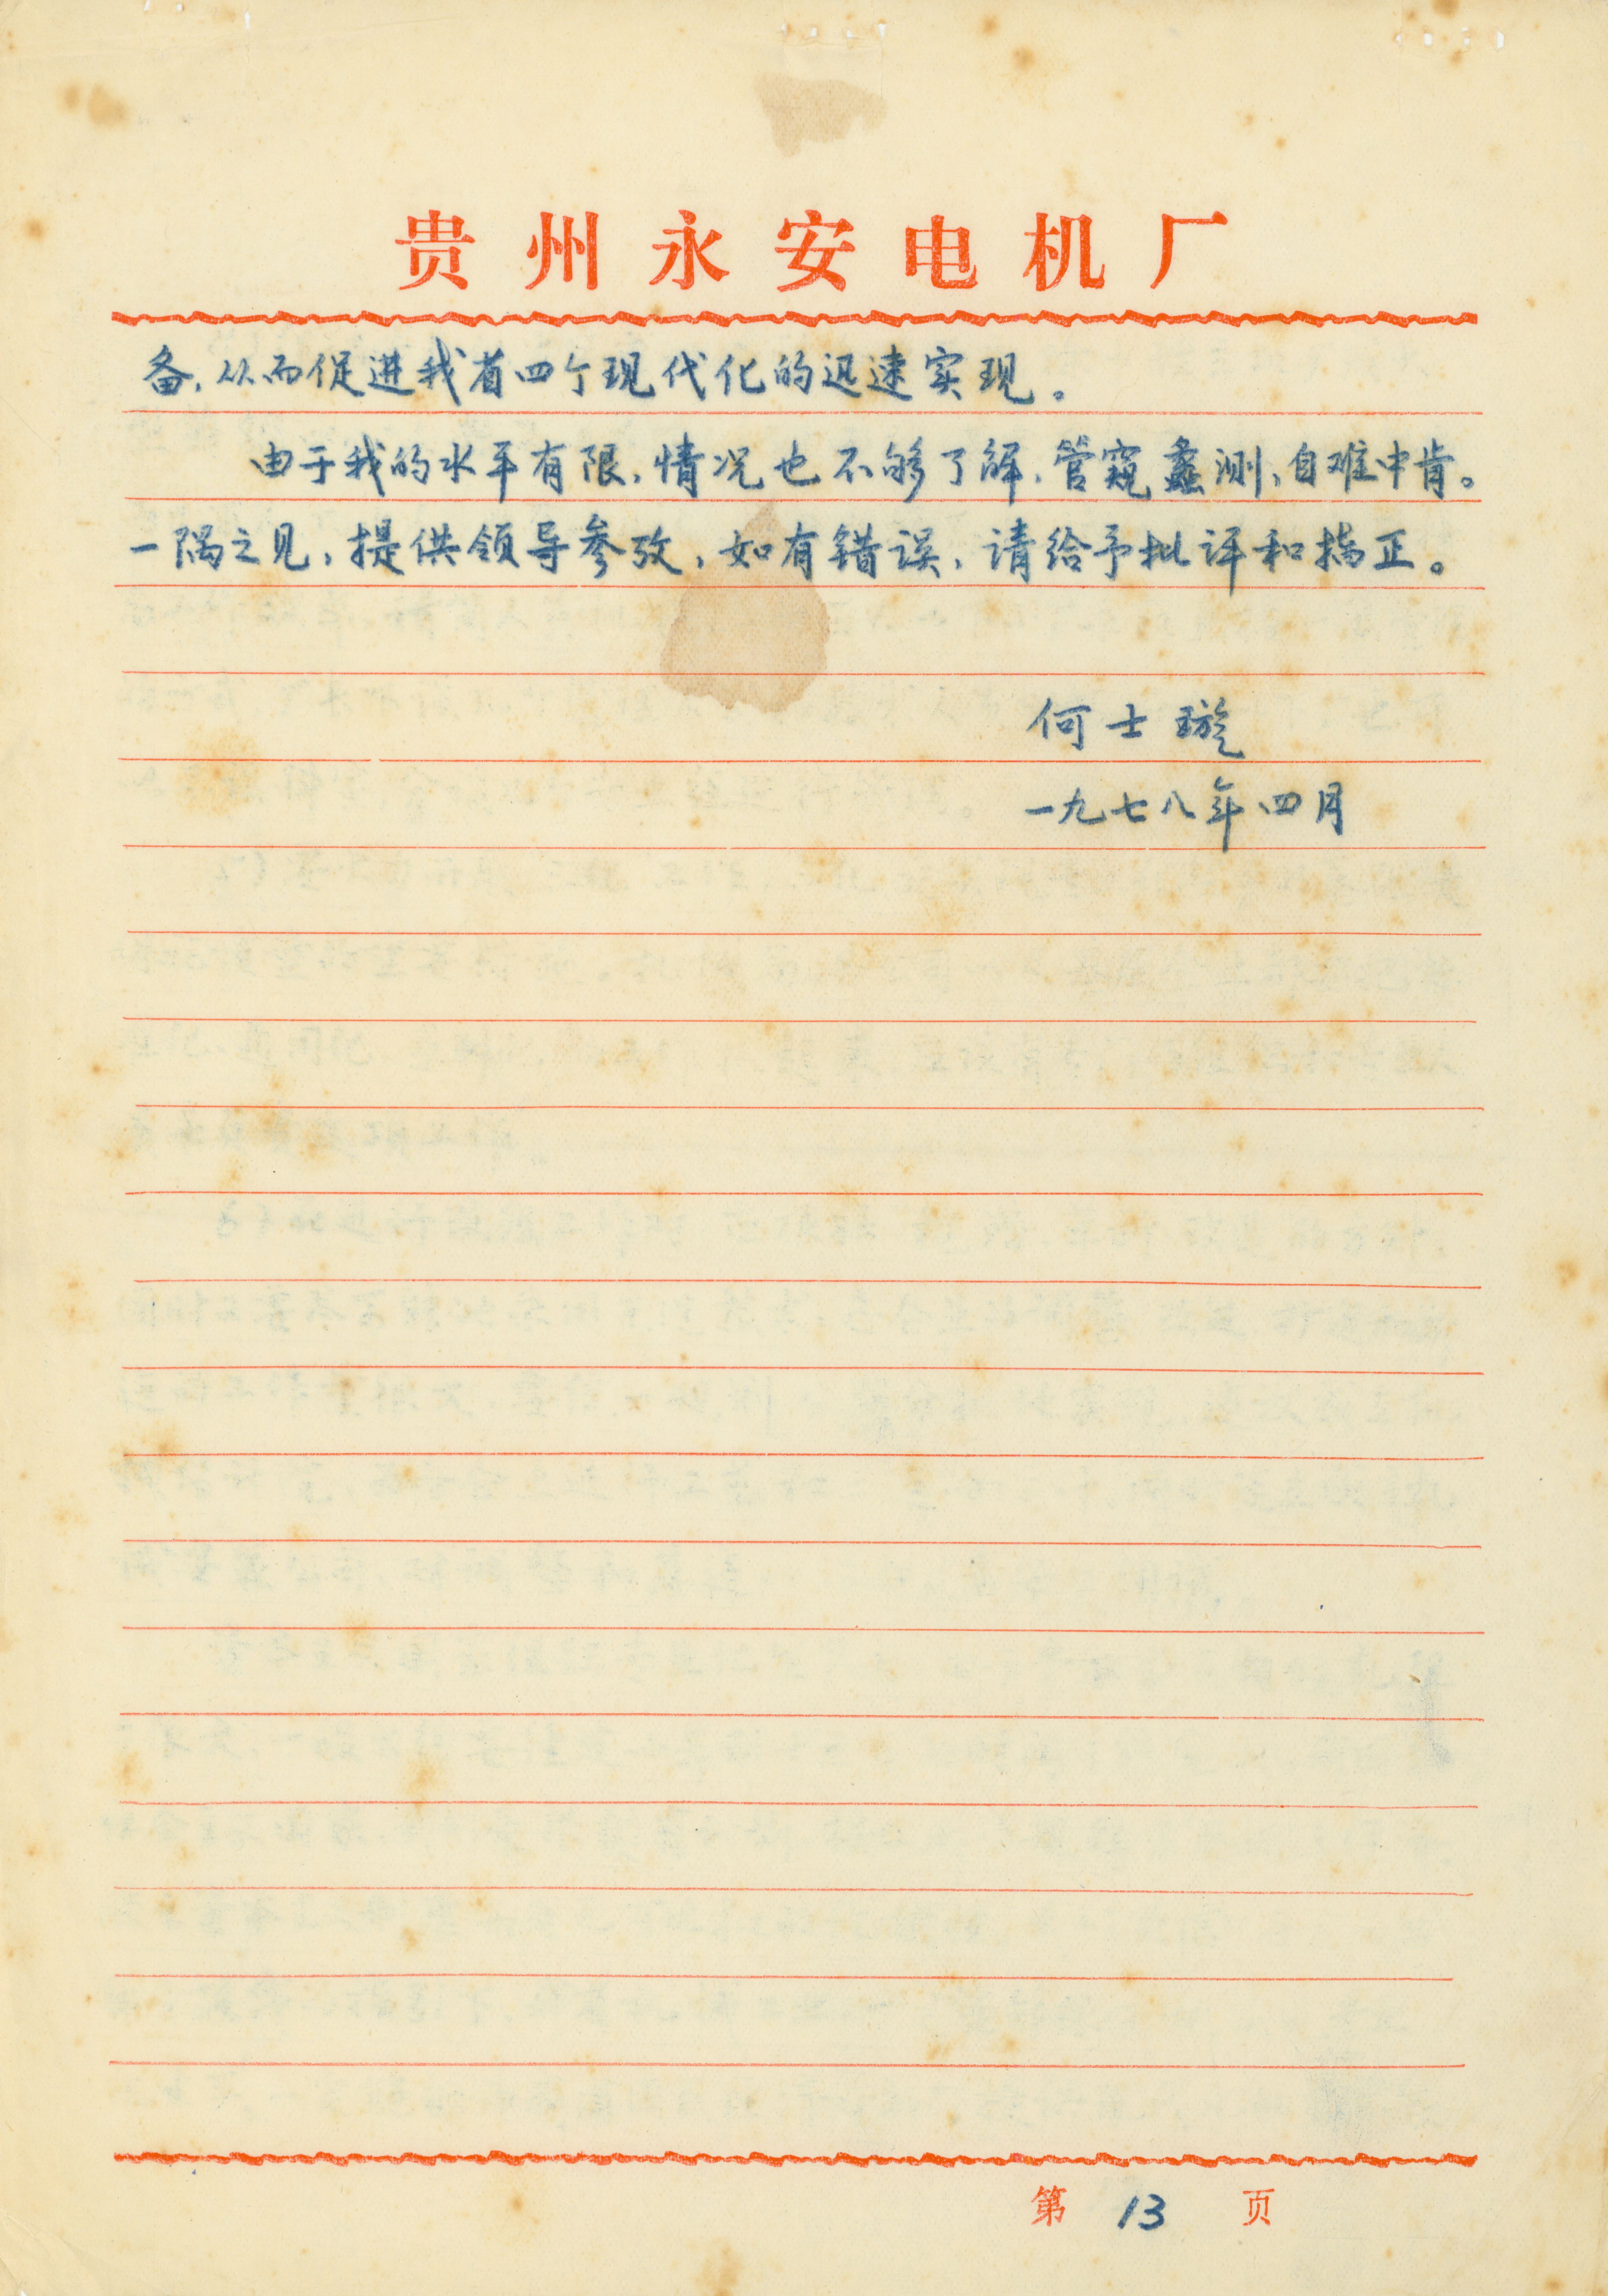 贵州永安电机厂
备，从而促进我省四个现代化的迅速实现。
由于我的水平有限，情况也不够了解，管窥蠡测，自难中肯。
一隅之见，提供领导参考，如有错误，请给予批评和指正。
何士璇
一九七八年四月
第 13 页